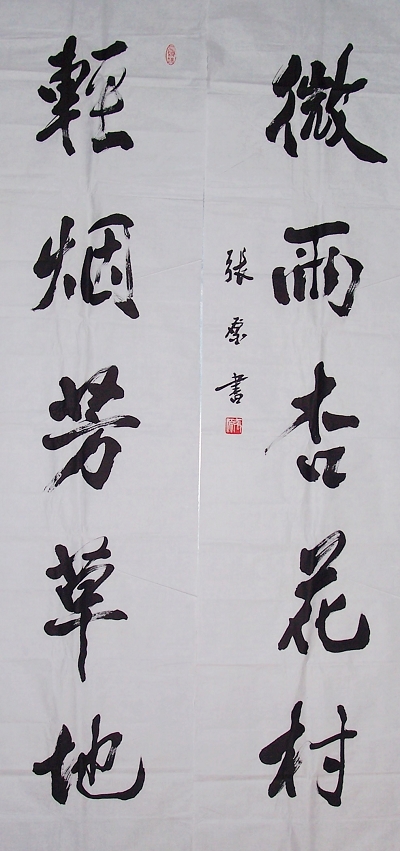 微雨杏花村
張書
輕烟芳草地